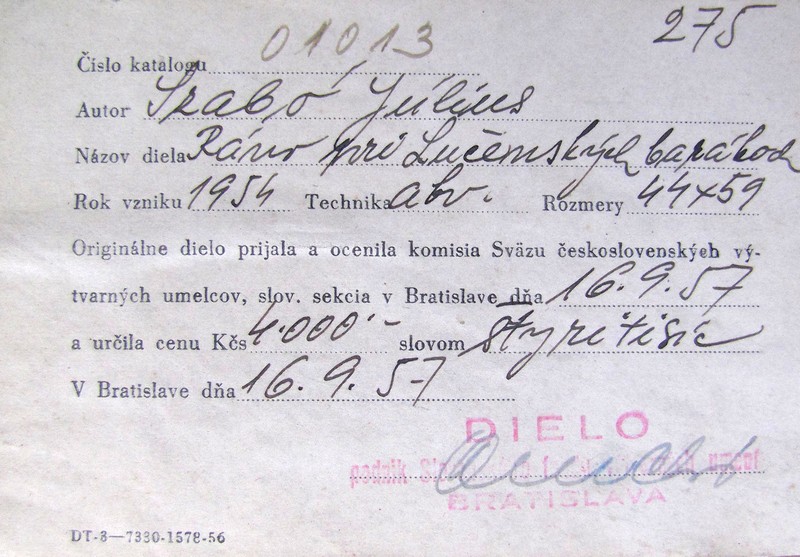 275
Číslo katalogu 01013
Autor Szabó Július
Názov diela Ráno pri Lučenských barákoch
Rok vzniku 1954 Technika akv. Rozmery 44x59
Originálne dielo prijala a ocenila komisia Sväzu československých vý-
tvarných umelcov, slov. sekcia v Bratislave dňa 16.9.57
a určila cenu Kčs 4.000'- slovom štyritisíc
V Bratislave dňa 16.9.57
DIELO
BRATISLAVA
DT-8—7330-1578-56